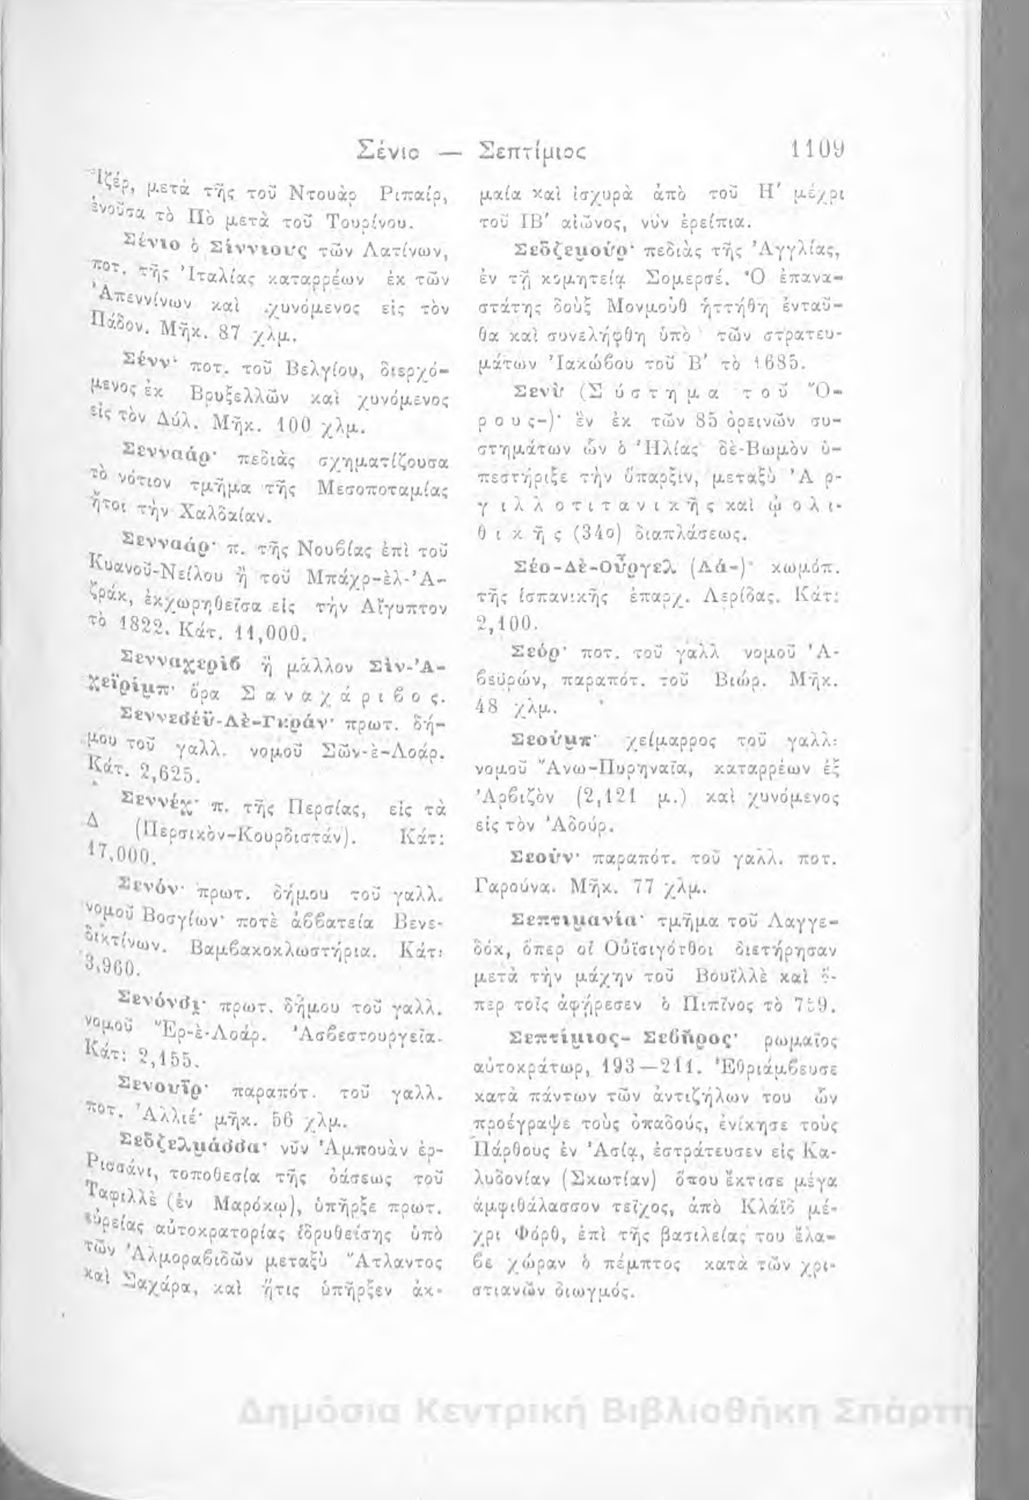 Σένιο — Σεπτίμιος 1109
Ἰζέρ, μετὰ τῆς τοῦ Ντουὰρ Ριπαίρ,
ἑνοῦσα τὸ Πὸ μετὰ τοῦ Τουρίνου.
Σένιο ὁ Σίννιους τῶν Λατίνων,
ποτ. τῆς Ἰταλίας καταρρέων ἐκ τῶν
Ἀπεννίνων καὶ χυνόμενος εἰς τὸν
Πάδον. Μῆκ. 87 χλμ.
Σένν· ποτ. τοῦ Βελγίου, διερχό-
μενος ἐκ Βρυξελλῶν καὶ χυνόμενος
εἰς τὸν Δύλ. Μῆκ. 100 χλμ.
Σενναάρ· πεδιὰς σχηματίζουσα
τὸ νότιον τμῆμα τῆς Μεσοποταμίας
ἤτοι τὴν Χαλδαίαν.
Σενναάρ· π. τῆς Νουβίας ἐπὶ τοῦ
Κυανοῦ-Νείλου ἢ τοῦ Μπάχρ-ὲλ-Ἀ-
ζράκ, ἐκχωρηθεῖσα εἰς τὴν Αἴγυπτον
τὸ 1822. Κάτ. 11,000.
Σενναχερὶβ ἢ μᾶλλον Σὶν-Ἀ-
χεϊρίμπ· ὅρα Σαναχάριβος.
Σεννεσέϋ-Λὲ-Γκράν· πρωτ. δή-
μου τοῦ γαλλ. νομοῦ Σῶν-ὲ-Λοάρ.
Κάτ. 2,625.
Σεννέχ· π. τῆς Περσίας, εἰς τὰ
Δ (Περσικὸν-Κουρδιστάν). Κάτ:
17,000.
Σενόν· πρωτ. δήμου τοῦ γαλλ.
νομοῦ Βοσγίων· ποτὲ ἀββατεία Βενε-
δικτίνων. Βαμβακοκλωστήρια. Κάτ:
3,960.
Σενόνσ· πρωτ. δήμου τοῦ γαλλ.
νομοῦ Ἒρ-ὲ-Λοάρ. Ἀσβεστουργεῖα.
Κάτ: 2,155.
Σενουῖρ· παραπότ. τοῦ γαλλ.
ποτ. Ἀλλιέ· μῆκ. 56 χλμ.
Σεδζελμάσσα· νῦν Ἀμπουὰν ἐρ-
Ρισσάνι, τοποθεσία τῆς ὀάσεως τοῦ
Ταφιλλὲ (ἐν Μαρόκῳ), ὑπῆρξε πρωτ.
εὐρείας αὐτοκρατορίας ἱδρυθείσης ὑπὸ
τῶν Ἀλμοραβιδῶν μεταξὺ Ἄτλαντος
καὶ Σαχάρα, καὶ ἥτις ὑπῆρξεν ἀκ-
μαία καὶ ἰσχυρὰ ἀπὸ τοῦ Η' μέχρι
τοῦ ΙΒ' αἰῶνος, νῦν ἐρείπια.
Σεδζεμούρ· πεδιὰς τῆς Ἀγγλίας,
ἐν τῇ κομητείᾳ Σομερσέ. Ὁ ἐπανα-
στάτης δοὺξ Μονμοὺθ ἡττήθη ἐνταῦ-
θα καὶ συνελήφθη ὑπὸ τῶν στρατευ-
μάτων Ἰακώβου τοῦ Β' τὸ 1685.
Σενὺ (Σύστημα τοῦ Ὄ-
ρους-)· ἓν ἐκ τῶν 85 ὀρεινῶν συ-
στημάτων ὧν ὁ Ἠλίας δὲ-Βωμὸν ὑ-
πεστήριξε τὴν ὕπαρξιν, μεταξὺ Ἀρ-
γιλλοτιτανικῆς καὶ ᾠολι-
θικῆς (34ο) διαπλάσεως.
Σέο-Δὲ-Οὖργελ (Λά-)· κωμόπ.
τῆς ἱσπανικῆς ἐπαρχ. Λερίδας. Κάτ:
2,100.
Σεόρ· ποτ. τοῦ γαλλ νομοῦ Ἀ-
βεϋρών, παραπότ. τοῦ Βιώρ. Μῆκ.
48 χλμ.
Σεούμπ· χείμαρρος τοῦ γαλλ:
νομοῦ Ἄνω-Πυρηναῖα, καταρρέων ἐξ
Ἀρβιζὸν (2,121 μ.) καὶ χυνόμενος
εἰς τὸν Ἀδούρ.
Σεούν· παραπότ. τοῦ γαλλ. ποτ.
Γαρούνα. Μῆκ. 77 χλμ.
Σεπτιμανία· τμῆμα τοῦ Λαγγε-
δόκ, ὅπερ οἱ Οὐϊσιγότθοι διετήρησαν
μετὰ τὴν μάχην τοῦ Βουϊλλὲ καὶ ὅ-
περ τοῖς ἀφῄρεσεν ὁ Πιπῖνος τὸ 759.
Σεπτίμιος- Σεβῆρος· ρωμαῖος
αὐτοκράτωρ, 193—211. Ἐθριάμβευσε
κατὰ πάντων τῶν ἀντιζήλων του ὧν
προέγραψε τοὺς ὀπαδούς, ἐνίκησε τοὺς
Πάρθους ἐν Ἀσίᾳ, ἐστράτευσεν εἰς Κα-
λυδονίαν (Σκωτίαν) ὅπου ἔκτισε μέγα
ἀμφιθάλασσον τεῖχος, ἀπὸ Κλάϊδ μέ-
χρι Φόρθ, ἐπὶ τῆς βασιλείας του ἔλα-
βε χώραν ὁ πέμπτος κατὰ τῶν χρι-
στιανῶν διωγμός.
Δημόσια Κεντρική Βιβλιοθήκη Σπάρτη